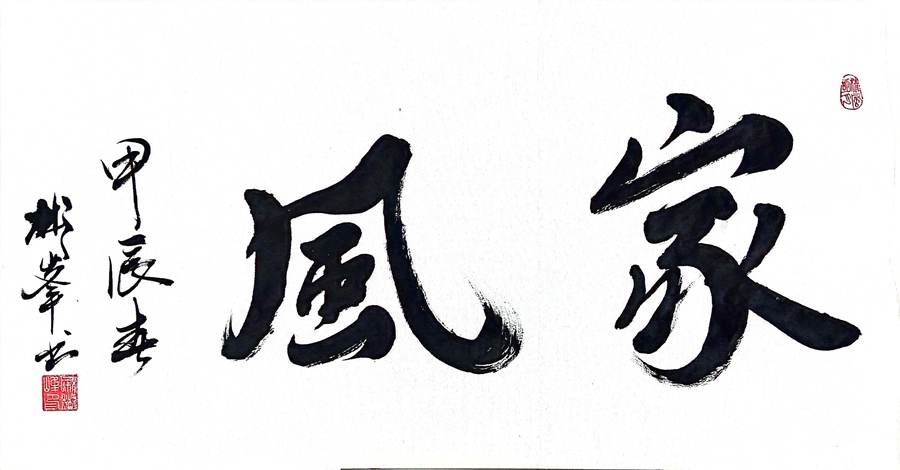 家風
甲辰春
彬峯书